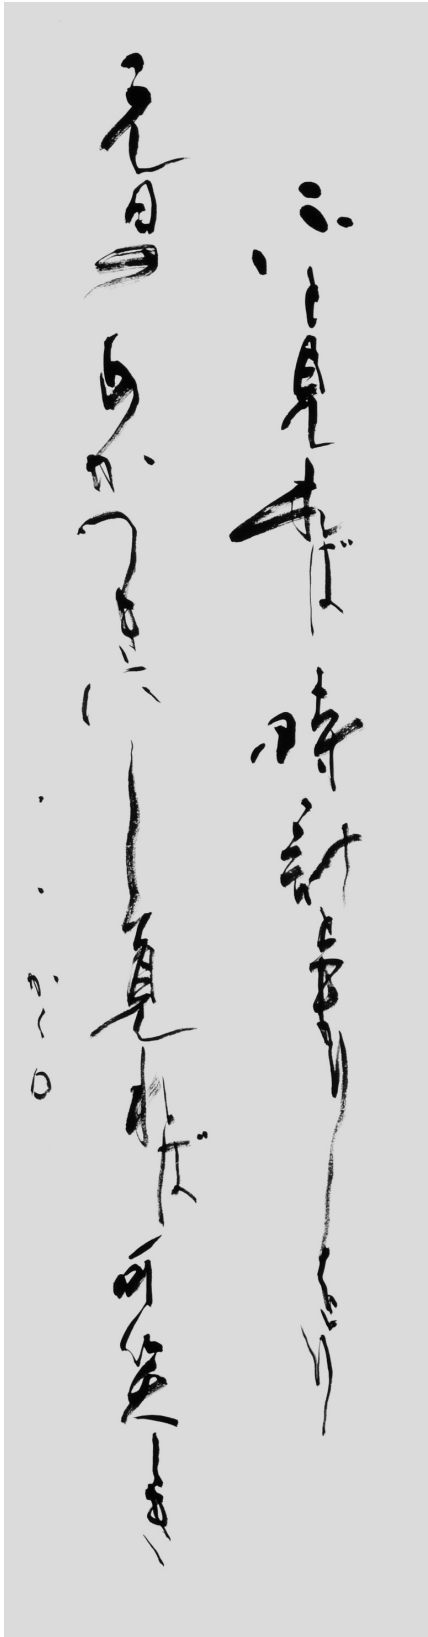 ふと見れば時計とまりをり
元日のあかつきにし見れば可笑しき